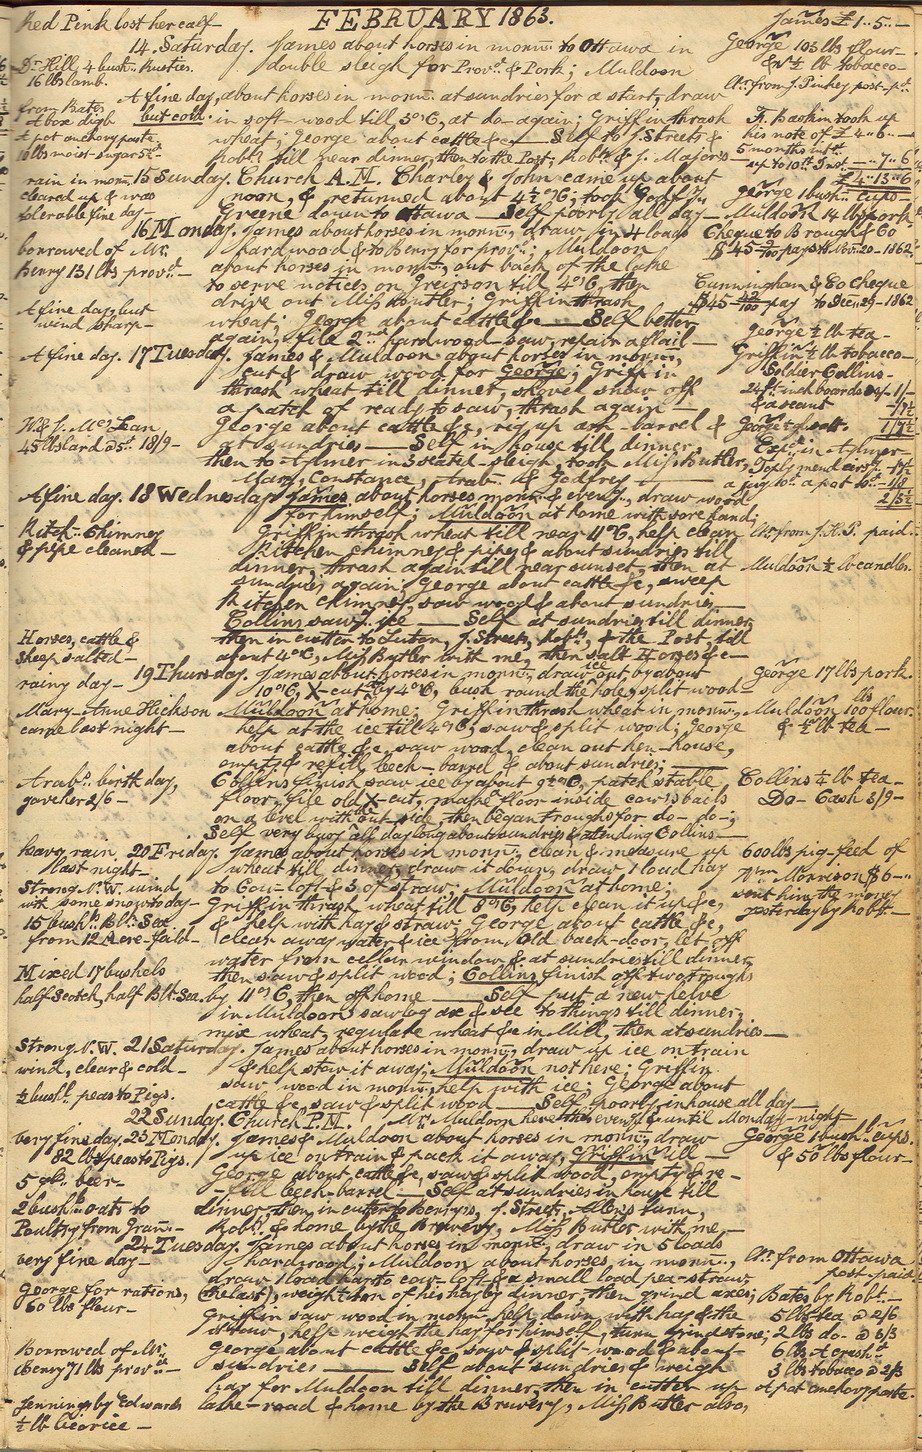 FEBRUARY 1863.
Red Pink lost her calf
James £ 1.. 5.. —
14. Saturday. James about horses in morng. to Ottawa in
double sleigh for Provdr. & Pork; Muldoon
Dr. Hill, 4 bush. Rusties.
16 lbs lamb.
George 103 lbs flour —
& ½ lb tobacco —
A fine day, about horses in morng. at sundries for a start, draw
but cold. in soft-wood till 3 o'C, at do again; Griffin thrash
wheat; George about cattle &c — Self to J. Street's &
Robt. till near dinner, then to the Post, Robt. & J. Major's —
from Bates
A box digb
A pot anchovy paste
10 lbs moist sugar
Ar. from J. Pinhey post-pd.
F. Baskin took up
his note of £ 4.. 6.. —
5 months int.
up to 10th Inst —.. 7.. 6
£ 4.. 13.. 6
rain in morng. 15 Sunday. Church A.M. Charley & John came up about
noon, & returned about 4½ o'C; took
Greene down to Ottawa — Self poorly all day —
cleared up & was
tolerable fine day —
George 1 bush. cups —
Muldoon 14 lbs pork
16 Monday. James about horses in morng., draw in 4 loads
hardwood & to Berry for provdr.; Muldoon
about horses in morng., out back of the lake
to serve notices on Grierson till 4 o'C, then
drive out Miss Butler; Griffin thrash
wheat; George about cattle &c — Self better
again; file 2nd hardwood-saw, repair a flail —
borrowed of Mr.
Berry 131 lbs provdr. —
A fine day, but
wind sharp —
Cheque to Brough & Co
$ 45 pays to Novr. 20 - 1862
Cunningham & Co cheque
$ 45 pay to Decr. 29 - 1862
George ½ lb tea —
Griffin ½ lb tobacco —
A fine day. 17 Tuesday. James & Muldoon about horses in morng.,
cut & draw wood for George; Griffin
thrash wheat till dinner, shovel snow off
a patch of ready to saw, thrash again —
George about cattle &c, rig up ash-barrel &
at sundries — Self in house till dinner,
then to Aylmer in 3 seated-sleigh, took Miss Butler,
Mary, Constance, Arab. & Godfrey —
W. & J. McLean
45 lbs lard @ 5d. 18/9 —
Soldier Collins —
24 ft. inch boards 1/-
1/7½
Exp. in Aylmer —
2/5½
A fine day. 18 Wednesday James about horses morng. & eveng., draw wood
for himself; Muldoon at home with sore hand;
Griffin thrash wheat till near 11 o'C, help clean
kitchen chimney & pipes & about sundries till
dinner, thrash again till near sunset, then at
sundries again; George about cattle &c, sweep
kitchen chimney, saw wood & about sundries —
Collins sawg. ice — Self at sundries till dinner,
then in cutter to Luton, J. Street, Robt., & the Post, till
about 4 o'C, Miss Butler with me, then salt Horses &c —
Kitch. Chimney
& pipe cleaned —
Horses, cattle &
sheep salted —
Ar. from J.H.P. paid.
Muldoon ½ lb candles.
rainy day — 19 Thursday. James about horses in morng., draw ice out, by about
10 o'C, X-cut by 4 o'C, bush round the hole, split wood —
Muldoon at home; Griffin thrash wheat in morng.,
help at the ice till 4 o'C, saw & split wood; George
about cattle &c, saw wood, clean out hen-house,
empty & refill leech-barrel & about sundries; —
Collins finish saw ice by about 9½ o'C, patch stable
floor, file old X-cut, make floor inside cow's bails
on a level with out side, then began troughs for do - do -;
Self very busy all day long about sundries & attending Collins —
Mary-Anne Hickson
came last night —
Arab's. birth day,
gave her 2/6 —
George 17 lbs pork.
Muldoon 100 lbs flour,
& ½ lb tea —
Collins ½ lb tea —
Do - Cash 8/9 —
heavy rain 20 Friday. James about horses in morng., clean & measure up
wheat till dinner, draw it down, draw 1 load hay
to Cow-loft & 3 of straw; Muldoon at home;
Griffin thrash wheat till 8 o'C, help clean it up &c,
& help with hay & straw; George about cattle &c,
clear away water & ice from Old back-door, let off
water from cellar window & at sundries till dinner,
then saw & split wood; Collins finish off two troughs
by 11 o'C, then off home — Self put a new helve
in Muldoon's sawlog axe & see to things till dinner,
mix wheat, regulate wheat &c in Mill, then at sundries —
last night —
Strong N.W. wind,
with some snow to day —
15 bush. Blk. Sea
from 12 Acre-field —
Mixed 17 bushels
half Scotch, half Blk. Sea.
600 lbs pig-feed of
Wm. Morrison $6 —
sent him the money
yesterday by Robt. —
Strong N.W. 21 Saturday. James about horses in morng., draw up ice on train
& help stow it away; Muldoon not here; Griffin
saw wood in morng., help with ice; George about
cattle &c, saw & split wood — Self poorly in house all day —
wind, clear & cold —
½ bush. peas to Pigs.
22 Sunday. Church P.M. Mr. Muldoon here this eveng. & until Monday-night
very fine day. 23 Monday. James & Muldoon about horses in morng., draw
up ice on train & pack it away; Griffin ill —
George about cattle &c, saw & split wood, empty & re-
-fill leech-barrel — Self at sundries in house till
dinner, then in cutter to Berrys, J. Street, Allens turn,
Robt. & home by the Brewery, Miss Butler with me —
82 lbs peas to Pigs.
5 gls. beer —
2 bush. oats to
Poultry from Gran. —
George 1 bush. cups.
& 50 lbs flour —
24 Tuesday. James about horses in morng., draw in 5 loads
hardwood; Muldoon about horses in morng.,
draw 1 load hay to cow-loft & a small load pea-straw,
(the last), weigh 1 ton of his hay by dinner, then grind axes;
Griffin saw wood in morng. help down with hay & the
straw, help weigh the hay for himself, turn grindstone;
George about cattle &c, saw & split wood & about
sundries — Self about sundries & weigh
hay for Muldoon till dinner, then in cutter up
lake-road & home by the Brewery, Miss Butler also,
very fine day —
George for rations,
60 lbs flour —
Borrowed of Mr.
Berry 71 lbs provdr. —
Jennings by Edwards
½ lb licorice —
Ar. from Ottawa
post-paid
Bates by Robt. —
5 lbs tea @ 2/6
2 lbs do - @ 3/3
6 lbs A crush.
3 lbs tobacco @ 2/3
A pot anchovy paste.